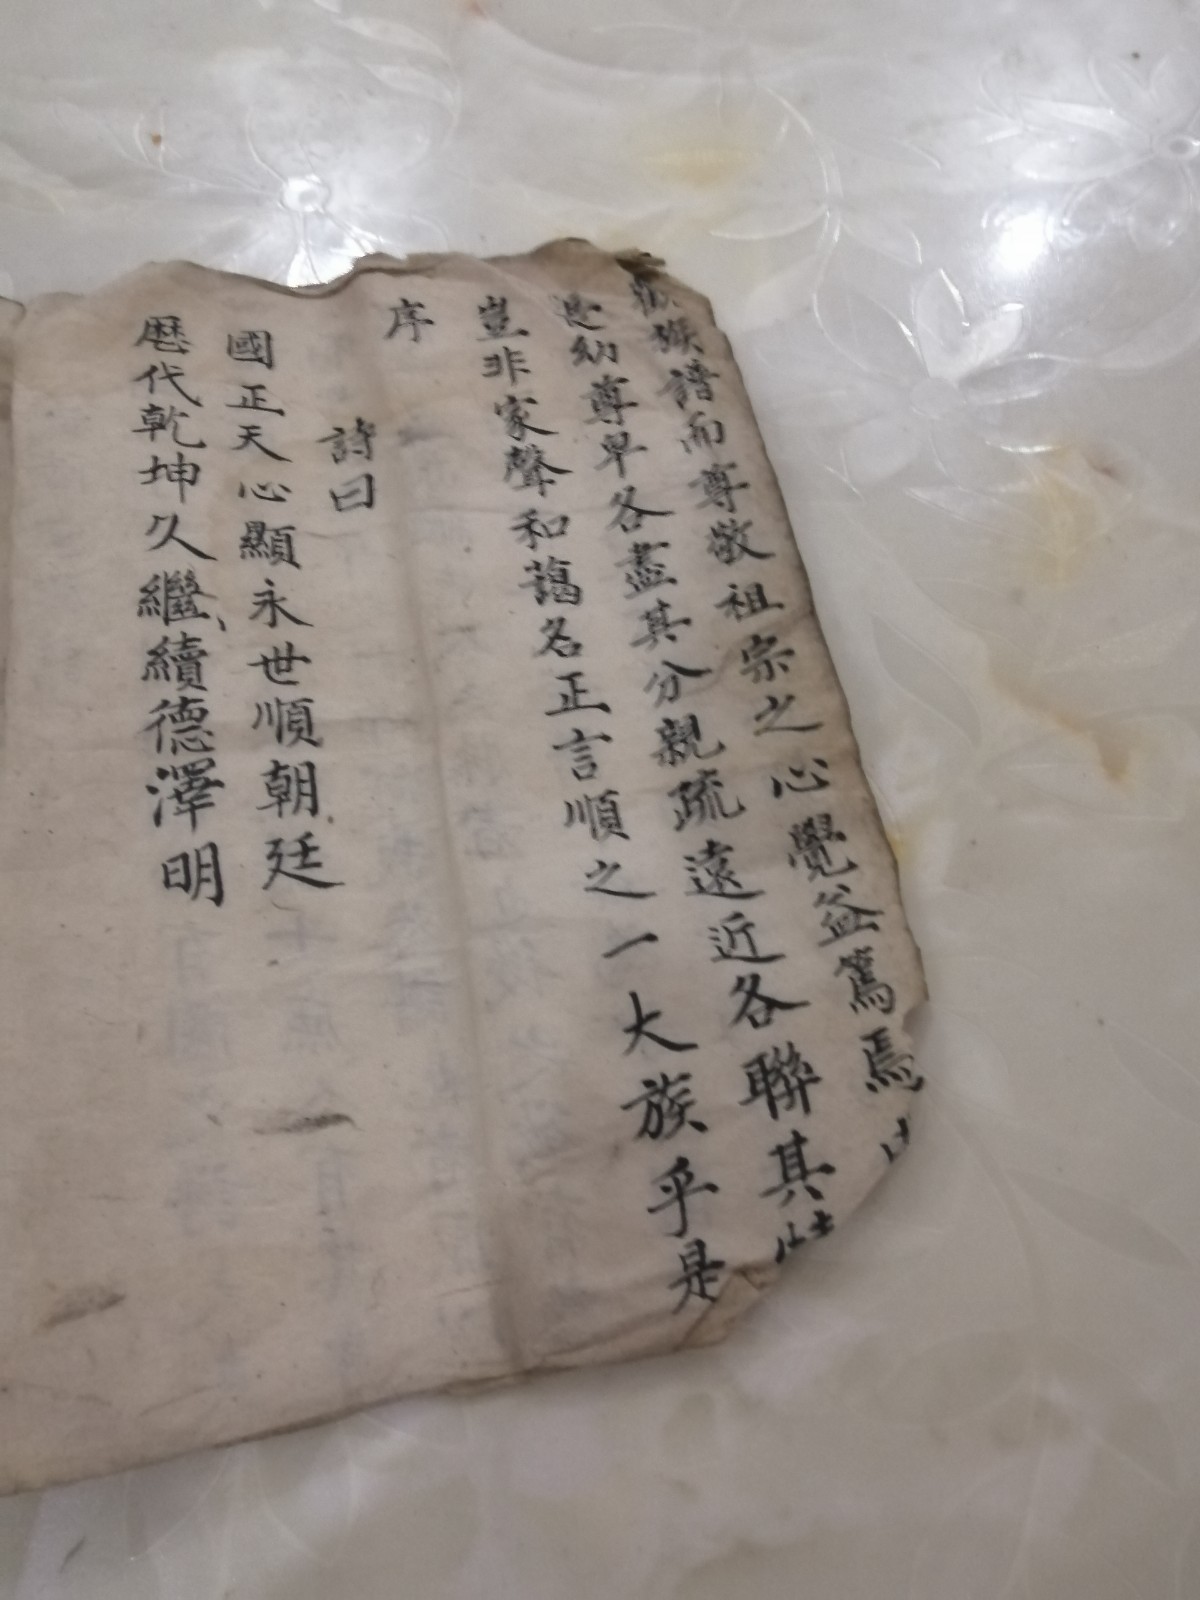 族譜而尊敬祖宗之心覺益篤焉
幼尊卑各盡其分親疏遠近各聯其
豈非家聲和藹名正言順之一大族乎是
序
詩曰
國正天心顯永世順朝廷
歷代乾坤久繼續德澤明